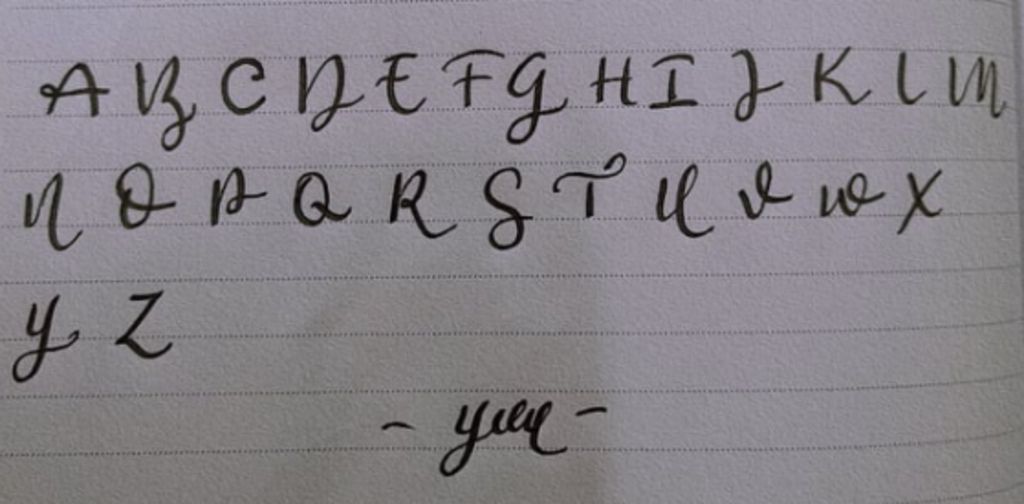 A B C D E F G H I J K L M
N O P Q R S T U V W X
Y Z